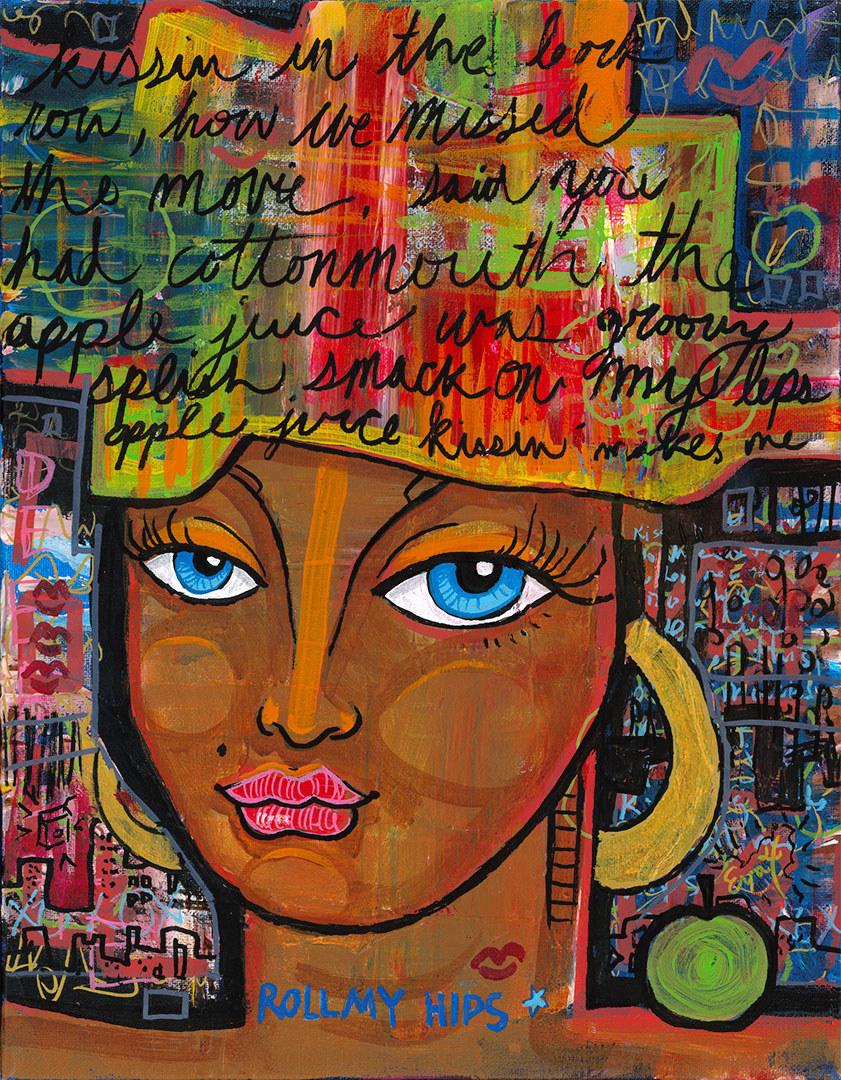 kissin in the back
row, how we missed
the movie, said you
had cottonmouth the
apple juice was groovy
splish smack on my lips
apple juice kissin makes me
ROLL MY HIPS